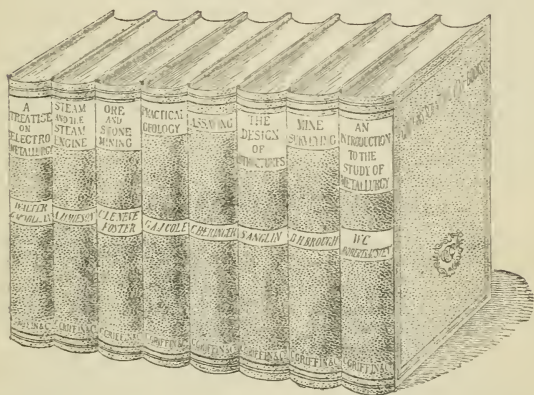 A
TREATISE
ON
ELECTRO
METALLURGY
WALTER
C. GRIFFIN & Co
STEAM
AND THE
STEAM
ENGINE
A. JAMIESON
C. GRIFFIN & Co
ORE
AND
STONE
MINING
C. LE NEVE
FOSTER
C. GRIFFIN & Co
PRACTICAL
GEOLOGY
G.A.J. COLE
C. GRIFFIN & Co
ASSAYING
C. BERINGER
C. GRIFFIN & Co
THE
DESIGN
OF
STRUCTURES
S. ANGLIN
C. GRIFFIN & Co
MINE
SURVEYING
B.H. BROUGH
C. GRIFFIN & Co
AN
INTRODUCTION
TO THE
STUDY OF
METALLURGY
W.C
ROBERTS-AUSTEN
C. GRIFFIN & Co